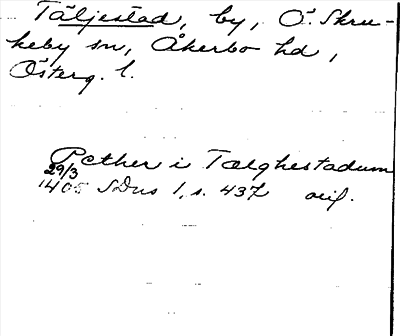 Täljestad, by, Ö. Skru-
keby sn, Åkerbo hd,
Österg. l.
Pether i Tælghestadum
29/3
1405 SDns 1, s. 437 orig.